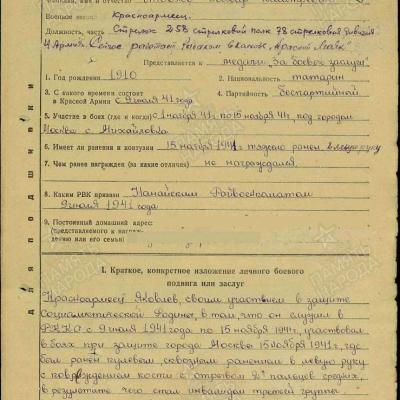 Военное звание Красноармеец.
Должность, часть Стрелок 258 стрелковый полк 78 стрелковой дивизии
Представляется к медали „За боевые заслуги“
1. Год рождения 1910 2. Национальность татарин
3. С какого времени состоит
в Красной Армии с 9 июля 41 года 4. Партийность беспартийный
5. Участие в боях (где и когда) с 1 ноября 41 г. по 15 ноября 41 г. под городом
Москва с Михайловка
6. Имеет ли ранения и контузии 15 ноября 1941 г. тяжело ранен в левую руку
7. Чем ранее награжден (за какие отличия) не награждался.
8. Каким РВК призван Нанайским Райвоенкоматом
9 июля 1941 года
9. Постоянный домашний адрес:
(представляемого к награж-
дению или его семьи)
для подшивки
I. Краткое, конкретное изложение личного боевого
подвига или заслуг
Красноармеец Яковлев, своим участием в защите
Социалистической Родины, в том, что он служил в
РККА с 9 июля 1941 года по 15 ноября 1941 г., участвовал
в боях при защите города Москва 15 ноября 41 г., где
был ранен пулевым, сквозным ранением в левую руку
с повреждением кости с отрывом 2х пальцев средних,
в результате чего стал инвалидом третьей группы